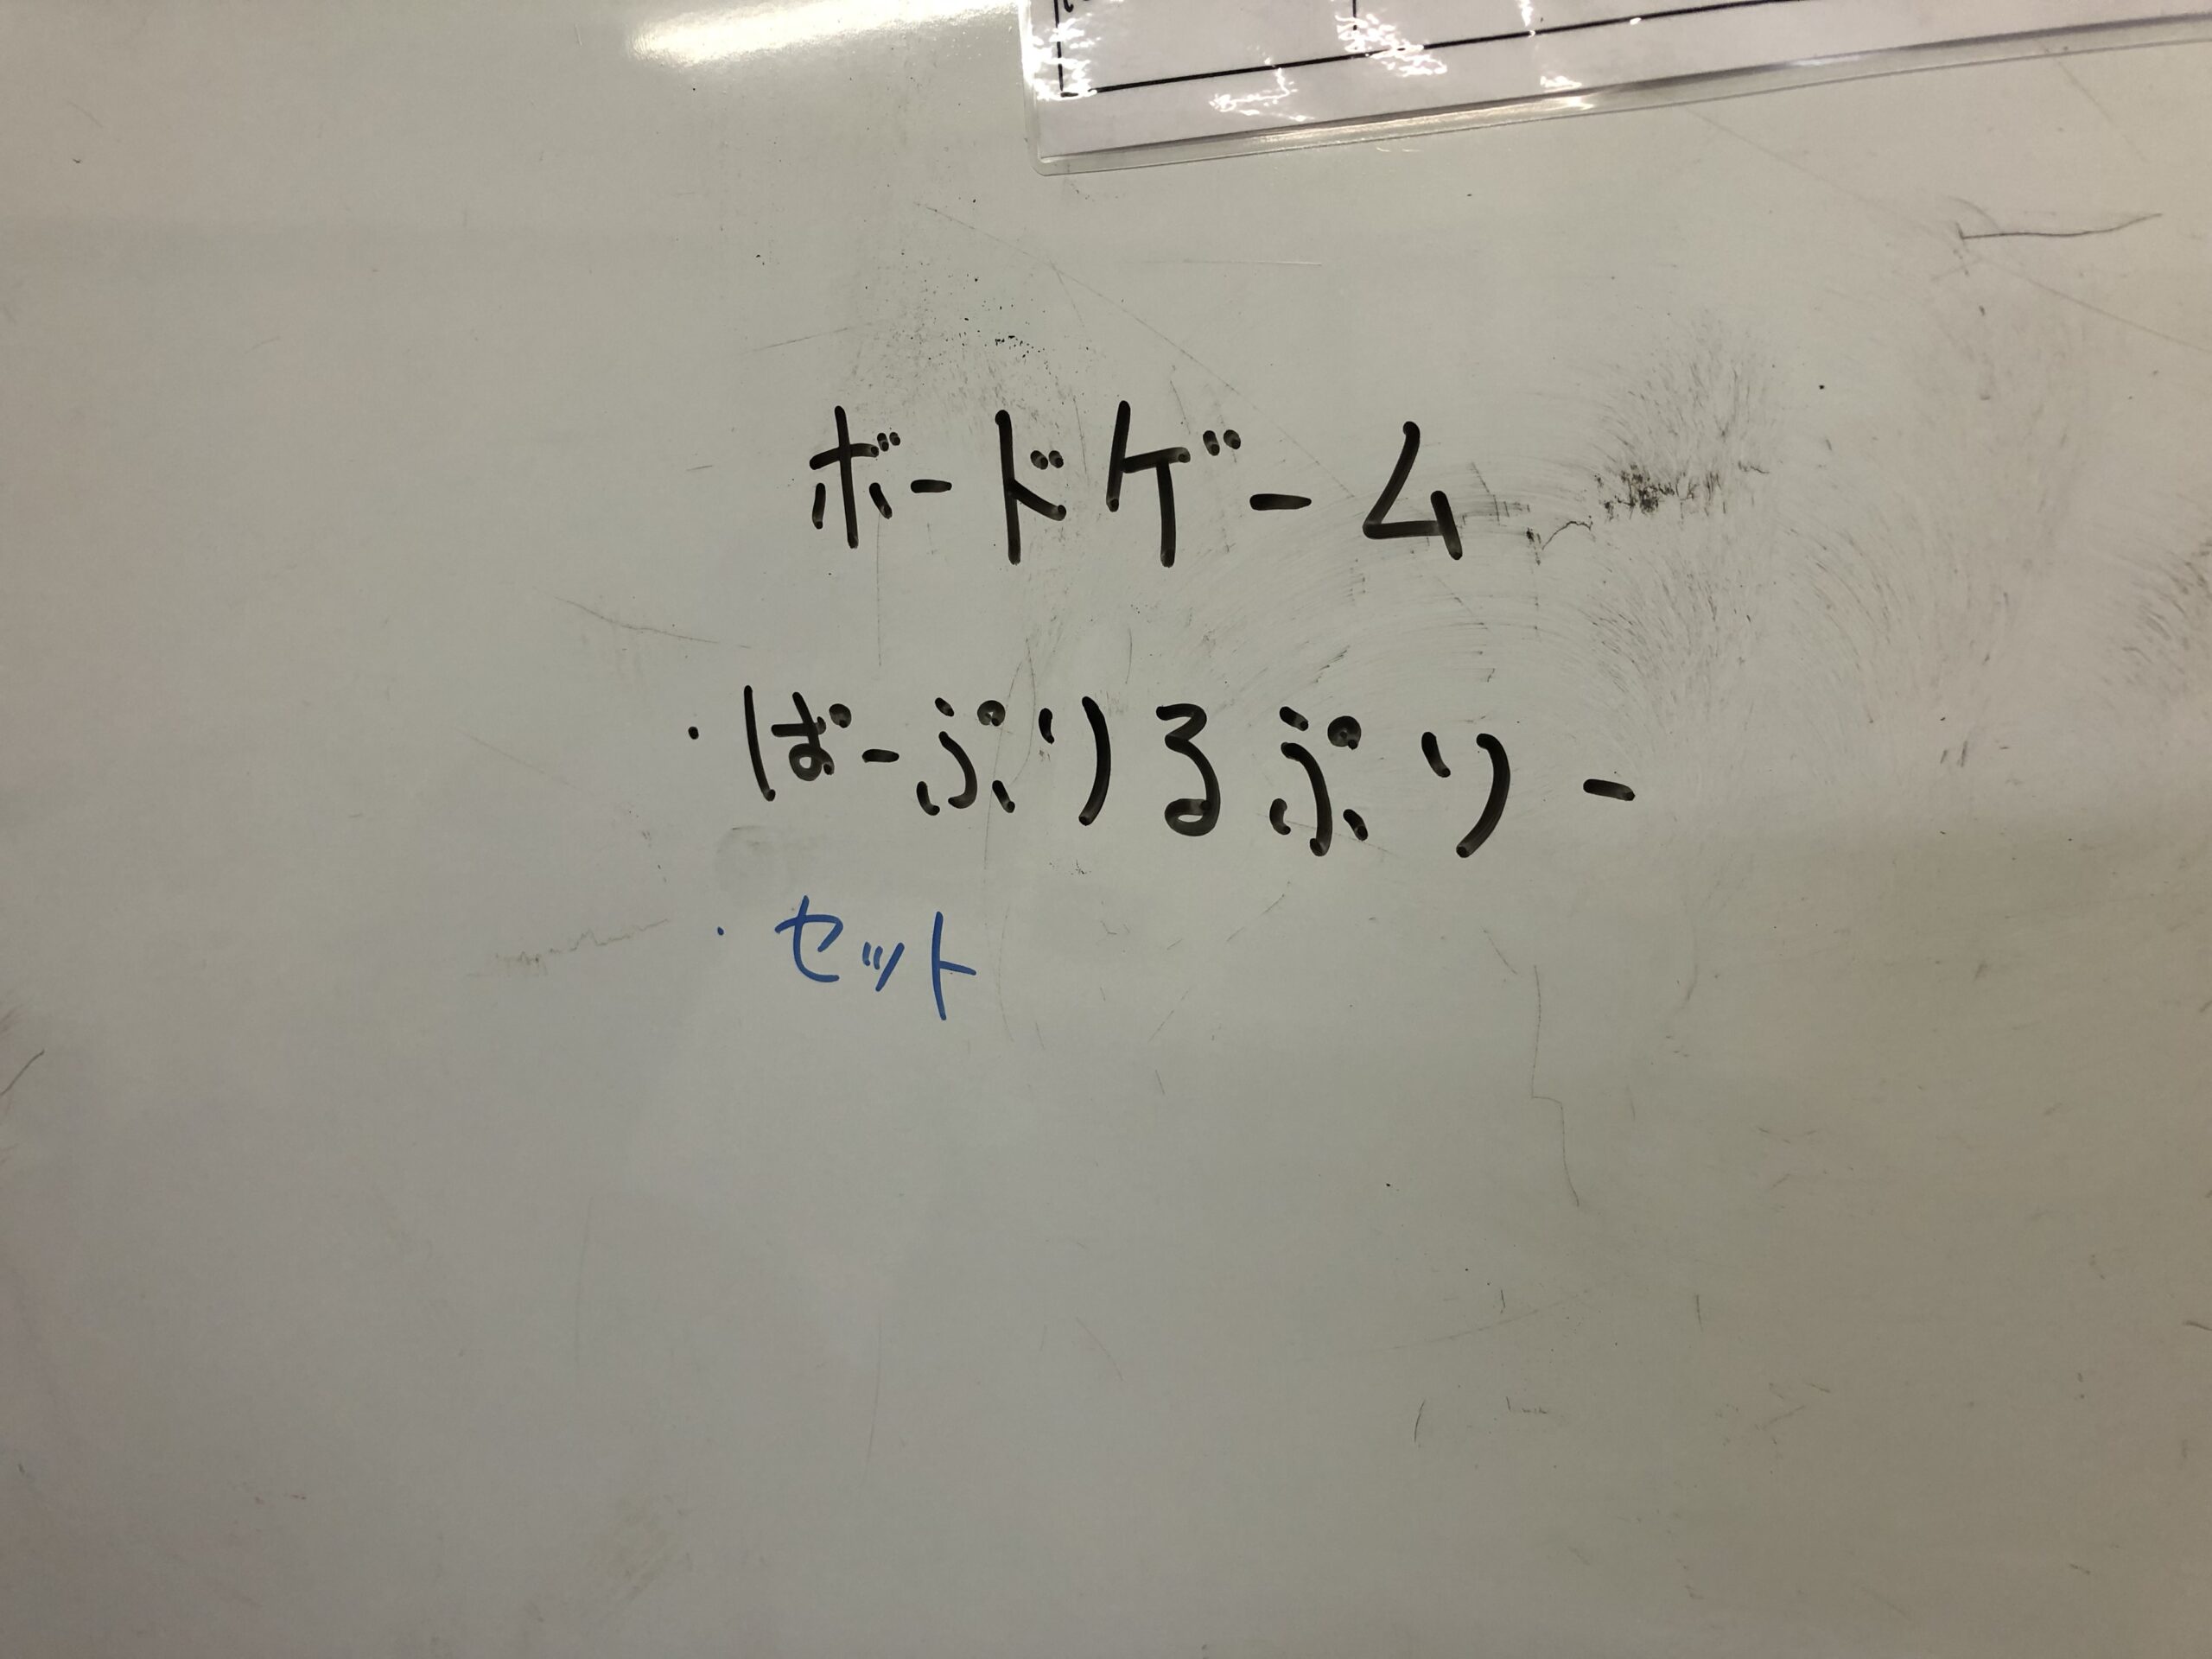 ボードゲーム
・ぱーぷりるぷりー
・セット